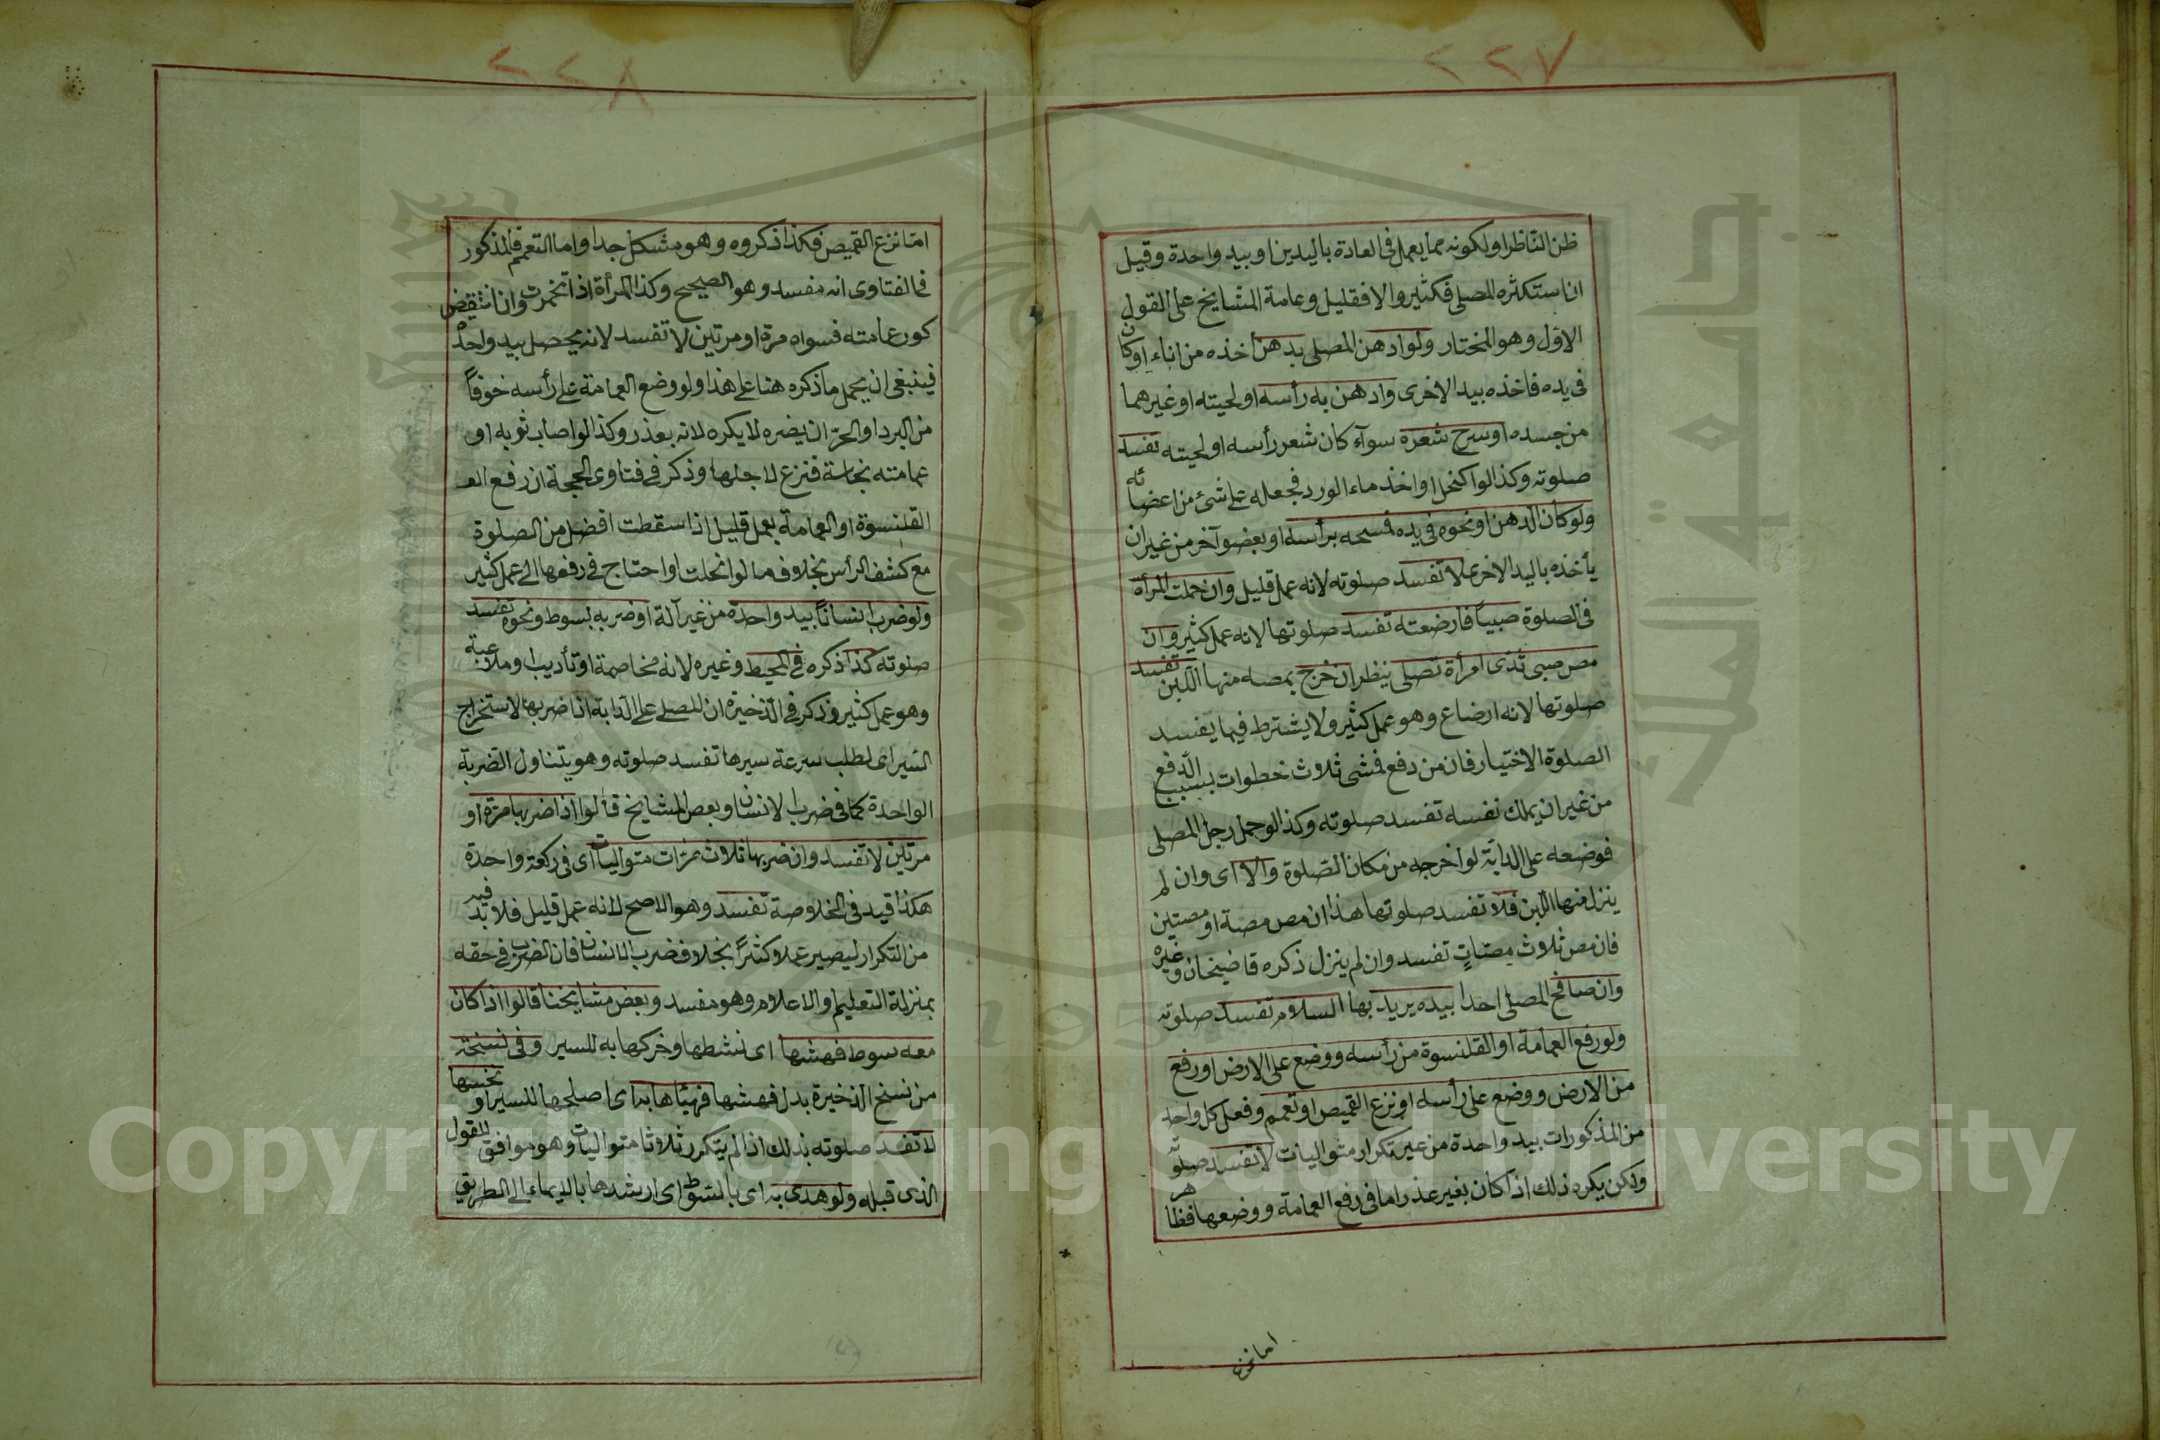 ٢٢٧
ظن الناظر او لكونه مما يعمل فى العادة باليدين او بيد واحدة وقيل
ان استكثره المصلى فكثير والا فقليل وعامة المشايخ على القول
الاول وهو المختار ولو ادهن المصلى بدهن أخذه من اناء او كان
فى يده فاخذه بيد الاخرى وادهن به رأسه او لحيته او غيرهما
من جسده او سرح شعره سوآء كان شعر رأسه او لحيته تفسد
صلوته وكذا لو اكتحل او اخذ ماء الورد فجعله على شئ من اعضائه
ولو كان الدهن او نحوه فى يده فمسحه برأسه او بعضو آخر من غير ان
يأخذه باليد الاخرى لا تفسد صلوته لانه عمل قليل وان حملت المرأة
فى الصلوة صبياً فارضعته تفسد صلوتها لانه عمل كثير وان
مص صبى ثدى امرأة تصلى ينظر ان خرج بمصه منها اللبن تفسد
صلوتها لانه ارضاع وهو عمل كثير ولا يشترط فيما يفسد
الصلوة الاختيار فان من دفع فمشى ثلاث خطوات بسبب الدفع
من غير ان يملك نفسه تفسد صلوته وكذا لو حمل رجل المصلى
فوضعه على الدابة لو اخرجه من مكان الصلوة والا اى وان لم
ينزل منها اللبن فلا تفسد صلوتها هذا ان مص مصة او مصتين
فان مص ثلاث مصات تفسد وان لم ينزل ذكره قاضيخان وغيره
وان صافح المصلى احدا بيده يريد بها السلام تفسد صلوته
ولو رفع العمامة او القلنسوة من رأسه ووضع على الارض او رفع
من الارض ووضع على رأسه او نزع القميص او تعمم وفعل كل واحد
من المذكورات بيد واحدة من غير تكرار متواليات لا تفسد صلوته
ولكن يكره ذلك اذا كان بغير عذر اما فى رفع العمامة ووضعها فظاهر
اما نزع
٢٢٨
امّا نزع القميص فكذا ذكروه وهو مشكل جدا واما التعمم فالمذكور
فى الفتاوى انه مفسد وهو الصحيح وكذا المرأة اذا تخمرت وان انتقض
كور عمامته فسواه مرة او مرتين لا تفسد لانه يحصل بيد واحدة
فينبغى ان يحمل ما ذكره هنا على هذا ولو وضع العمامة على رأسه خوفاً
من البرد او الحرّ ان يضره لا يكره لانه بعذر وكذا لو اصاب ثوبه او
عمامته نجاسة فنزع لاجلها وذكر فى فتاوى الحجة ان رفع الع
القلنسوة او العمامة بعمل قليل اذا سقطت افضل من الصلوة
مع كشف الرأس بخلاف ما لو انحلت او احتاج فى رفعها الى عمل كثير
ولو ضرب انساناً بيد واحدة من غير آلة او ضربه بسوط ونحوه تفسد
صلوته كذا ذكره فى المحيط وغيره لانه مخاصمة او تأديب او ملاعبة
وهو عمل كثير وذكر فى الذخيرة ان المصلى على الدابة اذا ضربها لاستخراج
السير اى لطلب سرعة سيرها تفسد صلوته وهو يتناول الضربة
الواحدة كما فى ضرب الانسان وبعض المشايخ قالوا اذا ضربها مرة او
مرتين لا تفسد وان ضربها ثلاث مرّات متواليات اى فى ركعة واحدة
هكذا قيد فى الخلاصة تفسد وهو الاصح لانه عمل قليل فلا بد فيه
من التكرار ليصير عملا كثيراً بخلاف ضرب الانسان فان الضرب فى حقه
بمنزلة التعليم والاعلام وهو مفسد وبعض مشايخنا قالوا اذا كان
معه سوط فهشها اى نشطها وحركها به للسير وفى نسخة
من نسخ الذخيرة بدل فهشها فهيأها به اى اصلحها للسير او نخسها
لا تفسد صلوته بذلك اذا لم يتكرر ثلاثا متواليات وهو موافق للقول
الذى قبله ولو هدى به اى بالسوط اى ارشدها بالايماء الى الطريق
جامعة الملك سعود
1957
Copyright © King Saud University